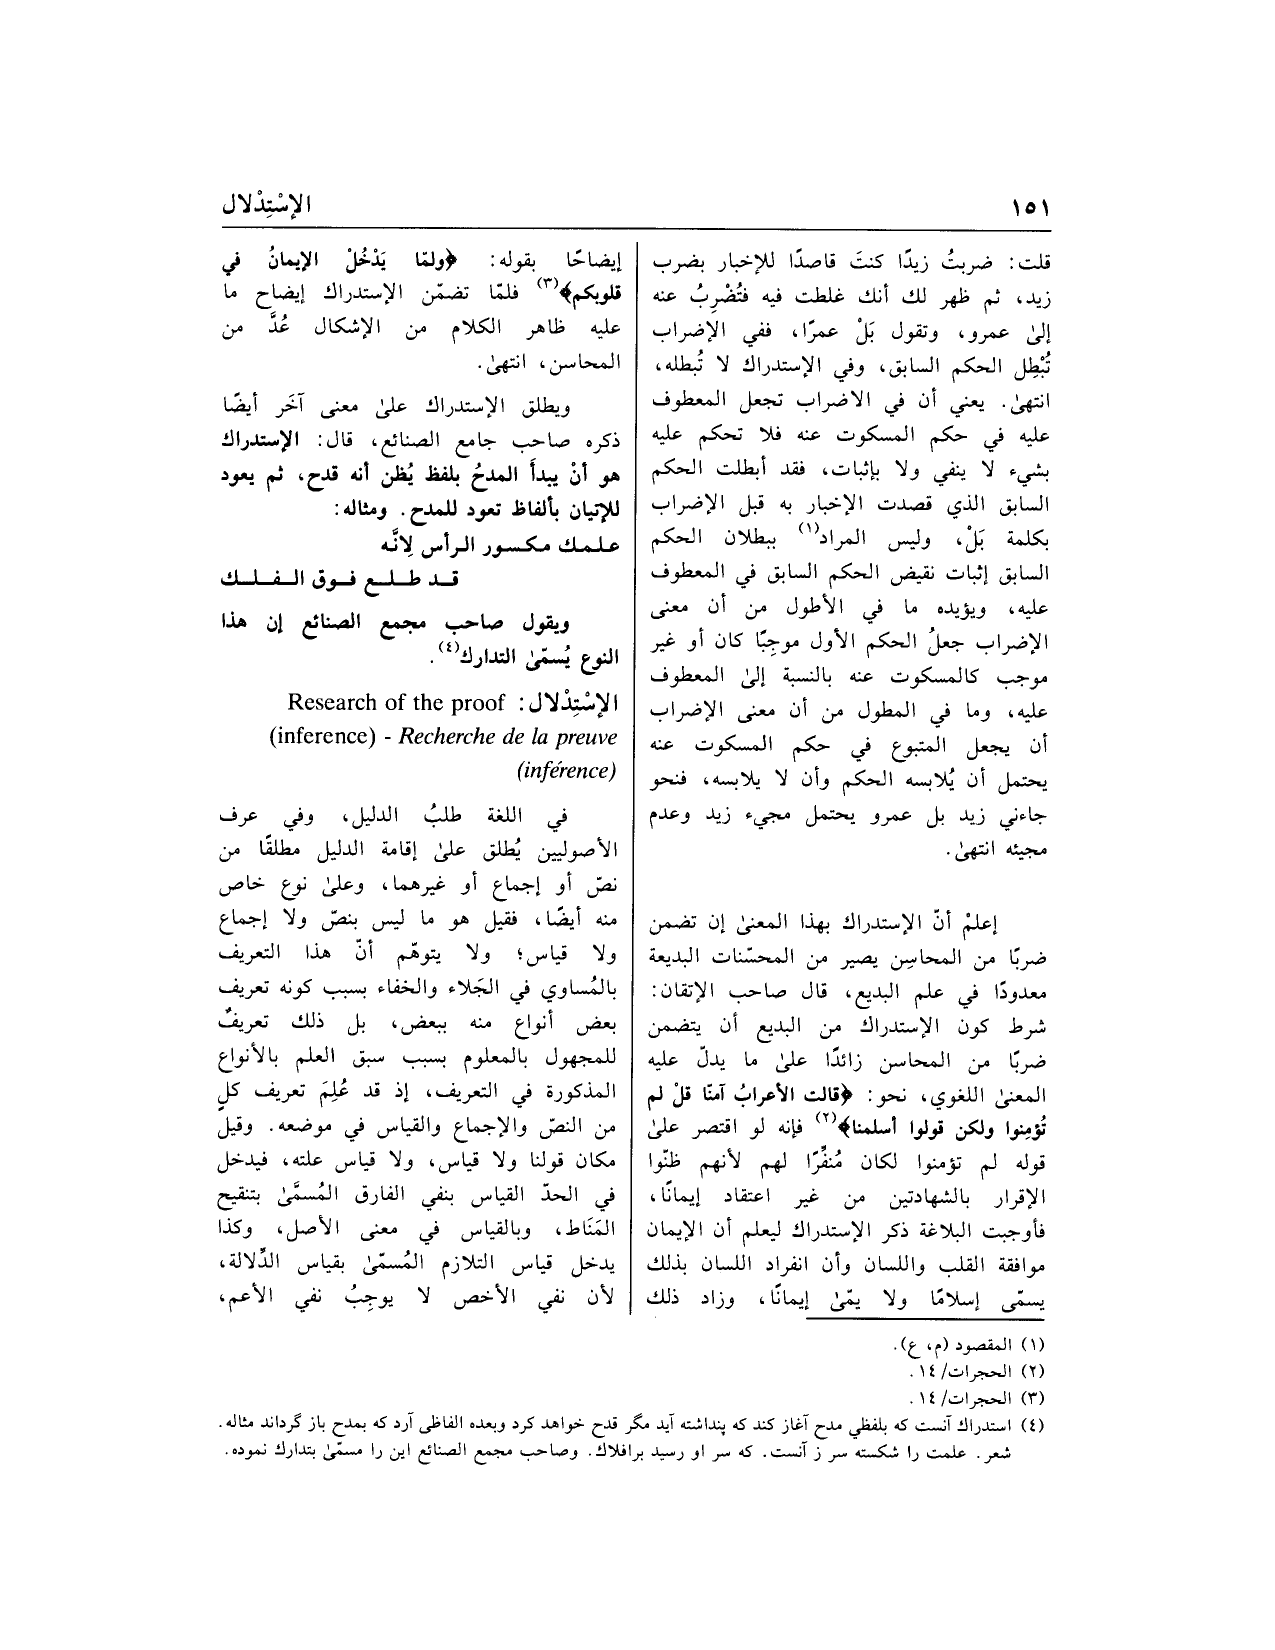 ١٥١
الإسْتِدْلال
قلت: ضربتُ زيدًا كنتَ قاصدًا للإخبار بضرب
زيد، ثم ظهر لك أنك غلطت فيه فتُضْرِبُ عنه
إلىٰ عمرو، وتقول بَلْ عمرًا، ففي الإضراب
تُبْطِل الحكم السابق، وفي الإستدراك لا تُبطله،
انتهىٰ. يعني أن في الاضراب تجعل المعطوف
عليه في حكم المسكوت عنه فلا تحكم عليه
بشيء لا ينفي ولا بإثبات، فقد أبطلت الحكم
السابق الذي قصدت الإخبار به قبل الإضراب
بكلمة بَلْ، وليس المراد(١) ببطلان الحكم
السابق إثبات نقيض الحكم السابق في المعطوف
عليه، ويؤيده ما في الأطول من أن معنى
الإضراب جعلُ الحكم الأول موجِبًا كان أو غير
موجب كالمسكوت عنه بالنسبة إلىٰ المعطوف
عليه، وما في المطول من أن معنى الإضراب
أن يجعل المتبوع في حكم المسكوت عنه
يحتمل أن يُلابسه الحكم وأن لا يلابسه، فنحو
جاءني زيد بل عمرو يحتمل مجيء زيد وعدم
مجيئه انتهىٰ.
إعلمْ أنّ الإستدراك بهذا المعنىٰ إن تضمن
ضربًا من المحاسِن يصير من المحسّنات البديعة
معدودًا في علم البديع، قال صاحب الإتقان:
شرط كون الإستدراك من البديع أن يتضمن
ضربًا من المحاسن زائدًا علىٰ ما يدلّ عليه
المعنىٰ اللغوي، نحو: ﴿قالت الأعرابُ آمنّا قلْ لم
تُؤمِنوا ولكن قولوا أسلمنا﴾(٢) فإنه لو اقتصر علىٰ
قوله لم تؤمنوا لكان مُنفِّرًا لهم لأنهم ظنّوا
الإقرار بالشهادتين من غير اعتقاد إيمانًا،
فأوجبت البلاغة ذكر الإستدراك ليعلم أن الإيمان
موافقة القلب واللسان وأن انفراد اللسان بذلك
يسمّى إسلامًا ولا يمّىٰ إيمانًا، وزاد ذلك
إيضاحًا بقوله: ﴿ولمّا يَدْخُلْ الإيمانُ في
قلوبكم﴾(٣) فلمّا تضمّن الإستدراك إيضاح ما
عليه ظاهر الكلام من الإشكال عُدَّ من
المحاسن، انتهىٰ.
ويطلق الإستدراك علىٰ معنى آخَر أيضًا
ذكره صاحب جامع الصنائع، قال: الإستدراك
هو أنْ يبدأ المدحُ بلفظ يُظن أنه قدح، ثم يعود
للإتيان بألفاظ تعود للمدح. ومثاله:
علمك مكسور الرأس لِانَّه
قد طلع فوق الفلك
ويقول صاحب مجمع الصنائع إن هذا
النوع يُسمّىٰ التدارك(٤).
الإسْتِدْلال: Research of the proof
(inference) - Recherche de la preuve
(inférence)
في اللغة طلبُ الدليل، وفي عرف
الأصوليين يُطلق علىٰ إقامة الدليل مطلقًا من
نصّ أو إجماع أو غيرهما، وعلىٰ نوع خاص
منه أيضًا، فقيل هو ما ليس بنصّ ولا إجماع
ولا قياس؛ ولا يتوهّم أنّ هذا التعريف
بالمُساوي في الجَلاء والخفاء بسبب كونه تعريف
بعض أنواع منه ببعض، بل ذلك تعريفٌ
للمجهول بالمعلوم بسبب سبق العلم بالأنواع
المذكورة في التعريف، إذ قد عُلِمَ تعريف كلٍ
من النصّ والإجماع والقياس في موضعه. وقيل
مكان قولنا ولا قياس، ولا قياس علته، فيدخل
في الحدّ القياس بنفي الفارق المُسمَّىٰ بتنقيح
المَنَاط، وبالقياس في معنى الأصل، وكذا
يدخل قياس التلازم المُسمّىٰ بقياس الدِّلالة،
لأن نفي الأخص لا يوجِبُ نفي الأعم،
(١) المقصود (م، ع).
(٢) الحجرات/ ١٤.
(٣) الحجرات/ ١٤.
(٤) استدراك آنست كه بلفظي مدح آغاز كند كه پنداشته آيد مگر قدح خواهد كرد وبعده الفاظى آرد كه بمدح باز گرداند مثاله.
شعر. علمت را شكسته سر ز آنست. كه سر او رسيد برافلاك. وصاحب مجمع الصنائع اين را مسمّىٰ بتدارك نموده.